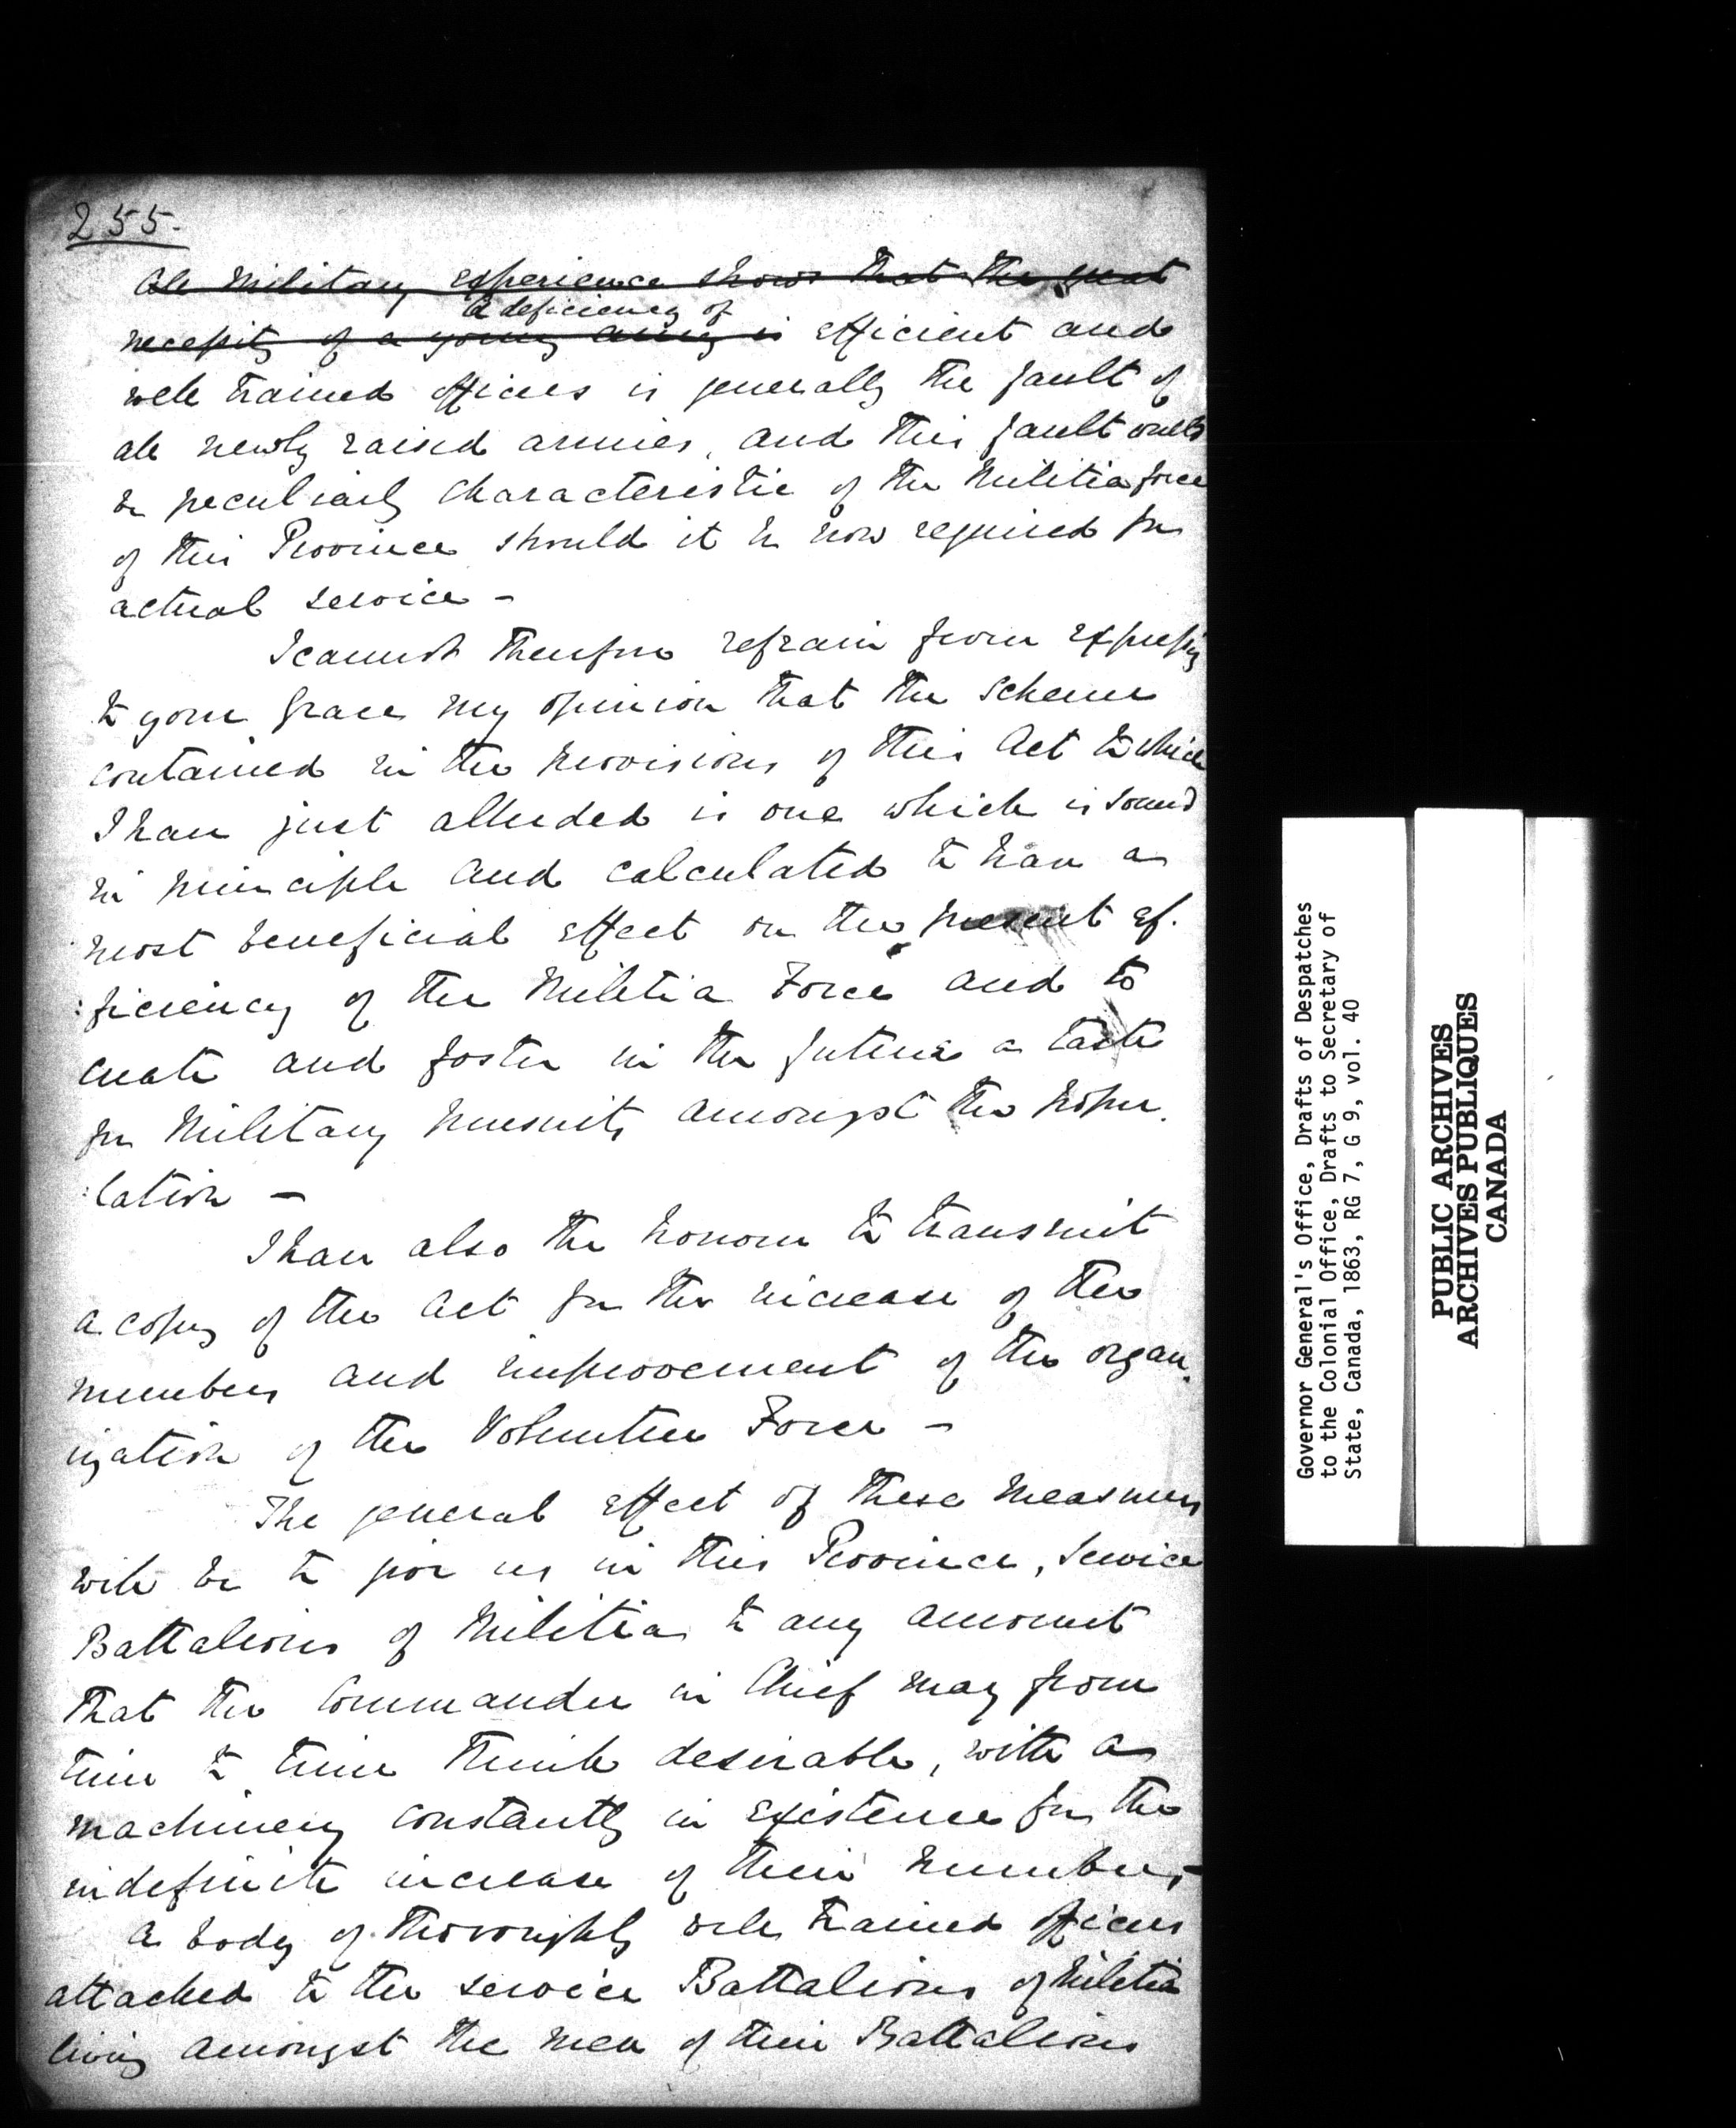 255.
All Military experience shows that the great
a deficiency of
necessity of a young army is efficient and
well trained officers is generally the fault of
all newly raised armies, and this fault would
be peculiarly characteristic of the Militia force
of this Province should it be now required for
actual service -
I cannot therefore refrain from expressing
to your Grace my opinion that the scheme
contained in the provisions of this Act to which
I have just alluded is one which is sound
in principle and calculated to have a
most beneficial effect on the present ef-
:ficiency of the Militia Force and to
create and foster in the future a taste
for Military pursuits amongst the popu-
:lation -
I have also the honour to transmit
a copy of the Act for the increase of the
numbers and improvement of the organ-
ization of the Volunteer Force -
The general effect of these measures
will be to give us in this Province, Service
Battalions of Militia to any amount
that the Commander in Chief may from
time to time think desirable, with a
machinery constantly in existence for the
indefinite increase of their number,-
A body of thoroughly well trained officers
attached to the service Battalions of Militia
living amongst the men of their Battalions
Governor General's Office, Drafts of Despatches
to the Colonial Office, Drafts to Secretary of
State, Canada, 1863, RG 7, G 9, vol. 40
PUBLIC ARCHIVES
ARCHIVES PUBLIQUES
CANADA